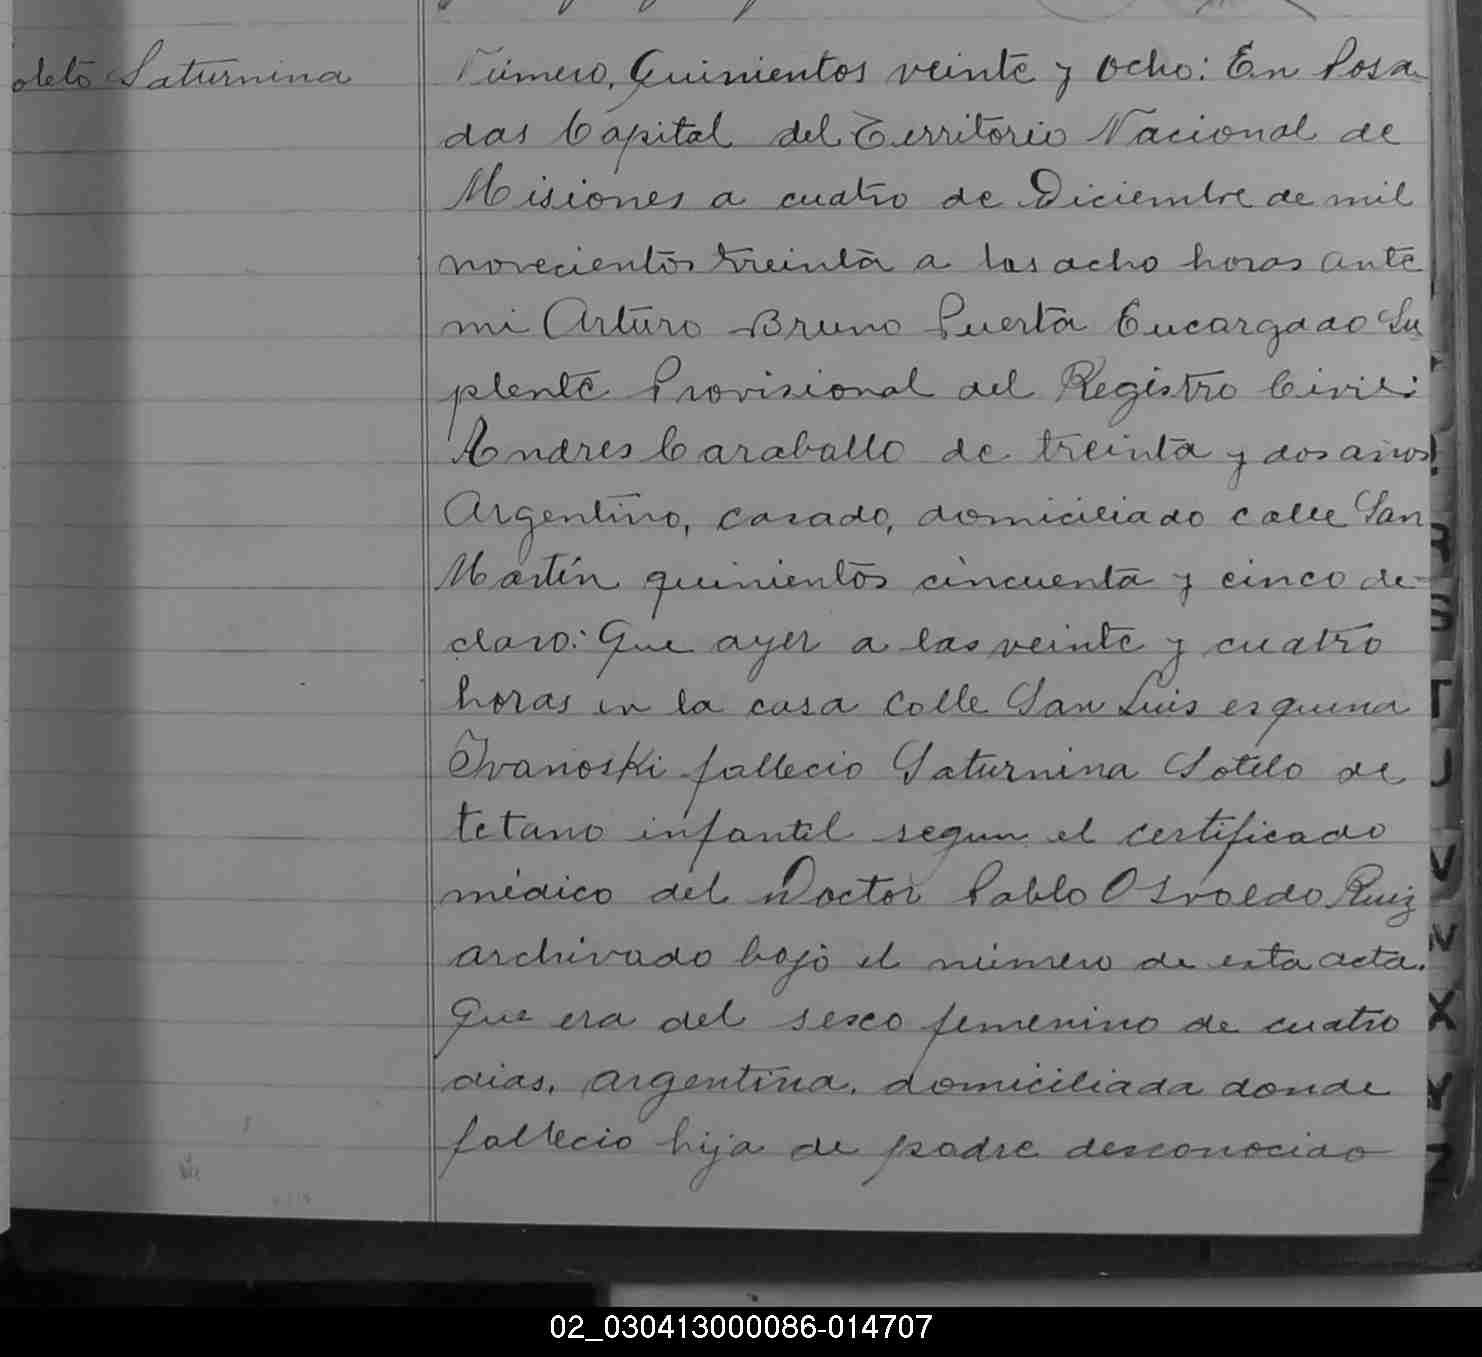 oleto Saturnina
Número, Quinientos veinte y ocho: En Posa
das Capital del Territorio Nacional de
Misiones a cuatro de Diciembre de mil
novecientos treinta a las ocho horas ante
mi Arturo Bruno Puerta Encargado Su
plente Provisional del Registro Civil:
Andres Caraballo de treinta y dos años
Argentino, casado, domiciliado calle San
Martín quinientos cincuenta y cinco de-
claro: Que ayer a las veinte y cuatro
horas en la casa calle San Luis esquina
Ivanoski fallecio Saturnina Sotelo de
tetano infantil segun el certificado
médico del Doctor Pablo Osvaldo Ruiz
archivado bajo el número de esta acta.
Que era del sexo femenino de cuatro
dias, argentina, domiciliada donde
fallecio hija de padre desconocido
R
S
T
U
V
X
Y
Z
02_030413000086-014707